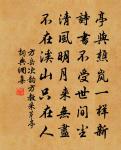 亭與嵐一樣新
詩書不受世間塵
清風明月來無盡
不在溪山只在人
方岳次韻方教采芹亭
詞典網集